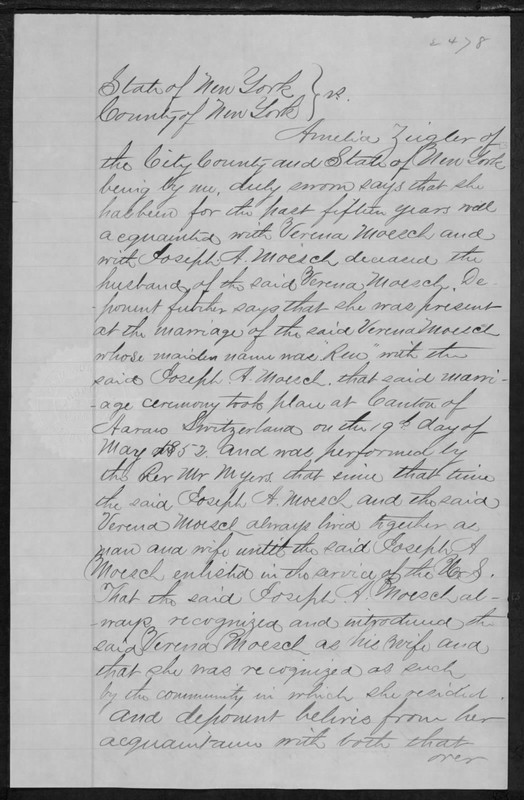 2478
State of New York
County of New York } ss.
Amelia Zeigler of
the City County and State of New York
being by me, duly sworn says that she
has been for the past fifteen years well
acquainted with Verena Moesch and
with Joseph A. Moesch deceased the
husband of the said Verena Moesch. De-
-ponent further says that she was present
at the marriage of the said Verena Moesch
whose maiden name was "Ren" with the
said Joseph A. Moesch. that said marri-
-age ceremony took place at Canton of
Aarau Switzerland on the 19th day of
May 1852. and was performed by
the Rev Mr Myers that since that time
the said Joseph A. Moesch and the said
Verena Moesch always lived together as
man and wife until the said Joseph A
Moesch enlisted in the service of the U. S.
That the said Joseph A. Moesch al-
-ways recognized and introduced the
said Verena Moesch as his wife and
that she was recognized as such
by the community in which she resided.
and deponent belives from her
acquaintance with both that
over